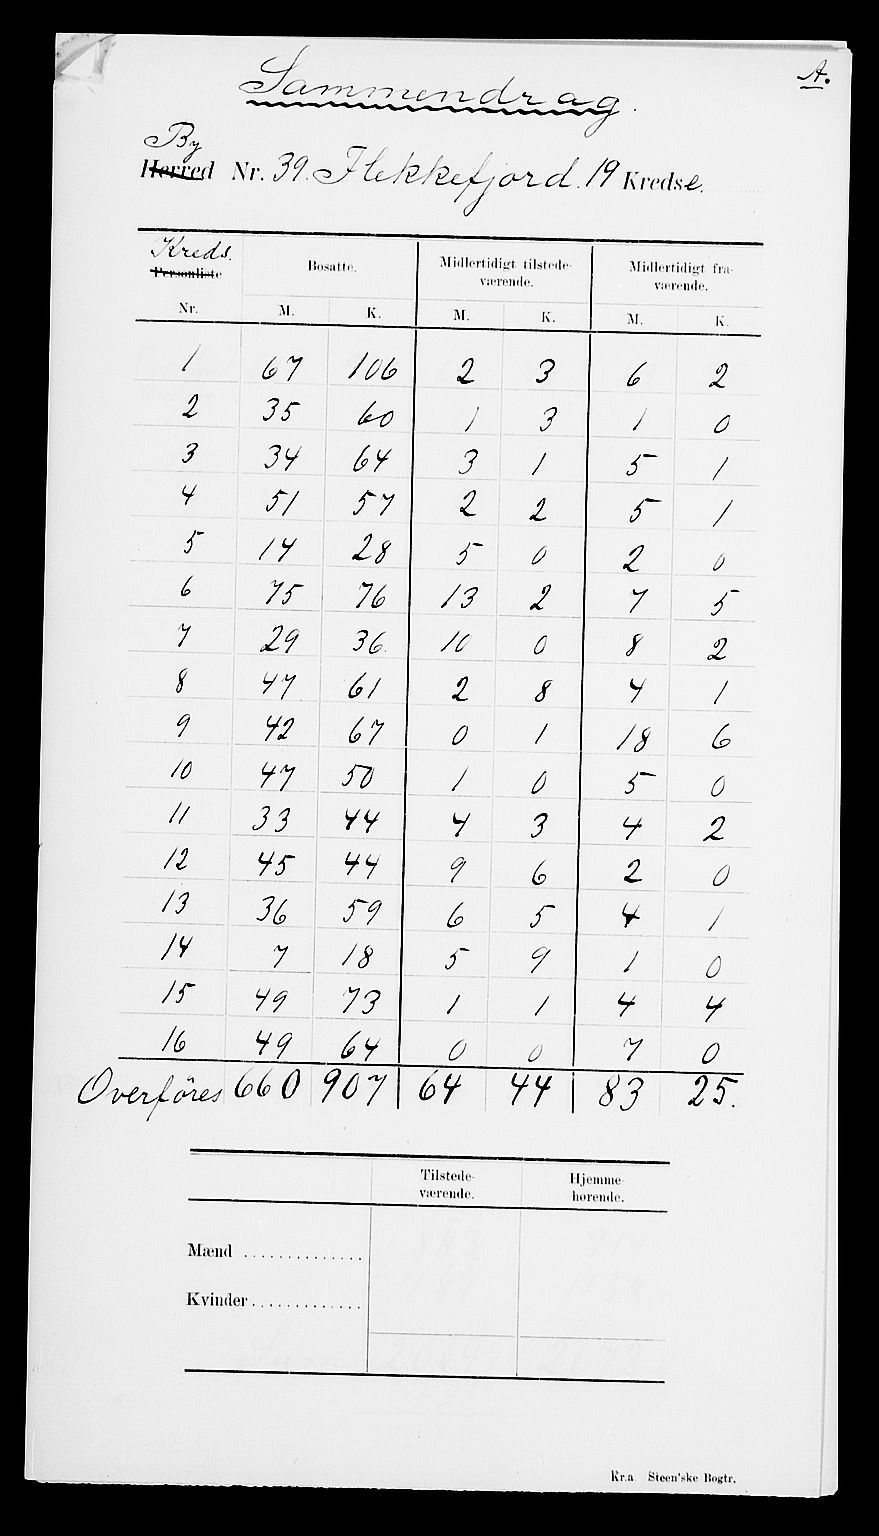 A.
Sammendrag.
By
Herred Nr. 39. Flekkefjord. 19 Kredse.
Kreds.
Personliste Bosatte. Midlertidigt tilstede- Midlertidigt fra-
værende. værende.
Nr. M. K. M. K. M. K.
1 67 106 2 3 6 2
2 35 60 1 3 1 0
3 34 64 3 1 5 1
4 51 57 2 2 5 1
5 14 28 5 0 2 0
6 75 76 13 2 7 5
7 29 36 10 0 8 2
8 47 61 2 8 4 1
9 42 67 0 1 18 6
10 47 50 1 0 5 0
11 33 44 4 3 4 2
12 45 44 9 6 2 0
13 36 59 6 5 4 1
14 7 18 5 9 1 0
15 49 73 1 1 4 4
16 49 64 0 0 7 0
Overføres 660 907 64 44 83 25.
Tilstede- Hjemme-
værende. hørende.
Mænd ..............
Kvinder .............
Kr.a Steen'ske Bogtr.